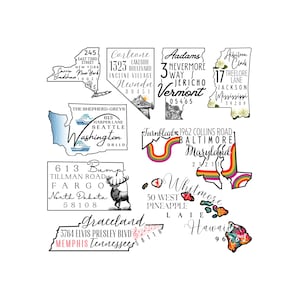 245
EAST 73RD STREET
New York
Carleone
1323 LAKESHORE BOULEVARD
INCLINE VILLAGE
Nevada
Aadams
3 NEVERMORE
WAY JERICHO
Vermont
05465
17 TREELORE
LANE
JACKSON
Mississippi
THE SHEPHERD-GREYS
613 HARPER LANE
SEATTLE
Washington
98119
Turnblads
1962 COLLINS ROAD
BALTIMORE
Maryland
613 Bump
TILLMAN ROAD
FARGO
North Dakota
58108
Whitmore
50 WEST
PINEAPPLE
LAIE
Hawaii
Graceland
3764 ELVIS PRESLEY BLVD
MEMPHIS Tennessee